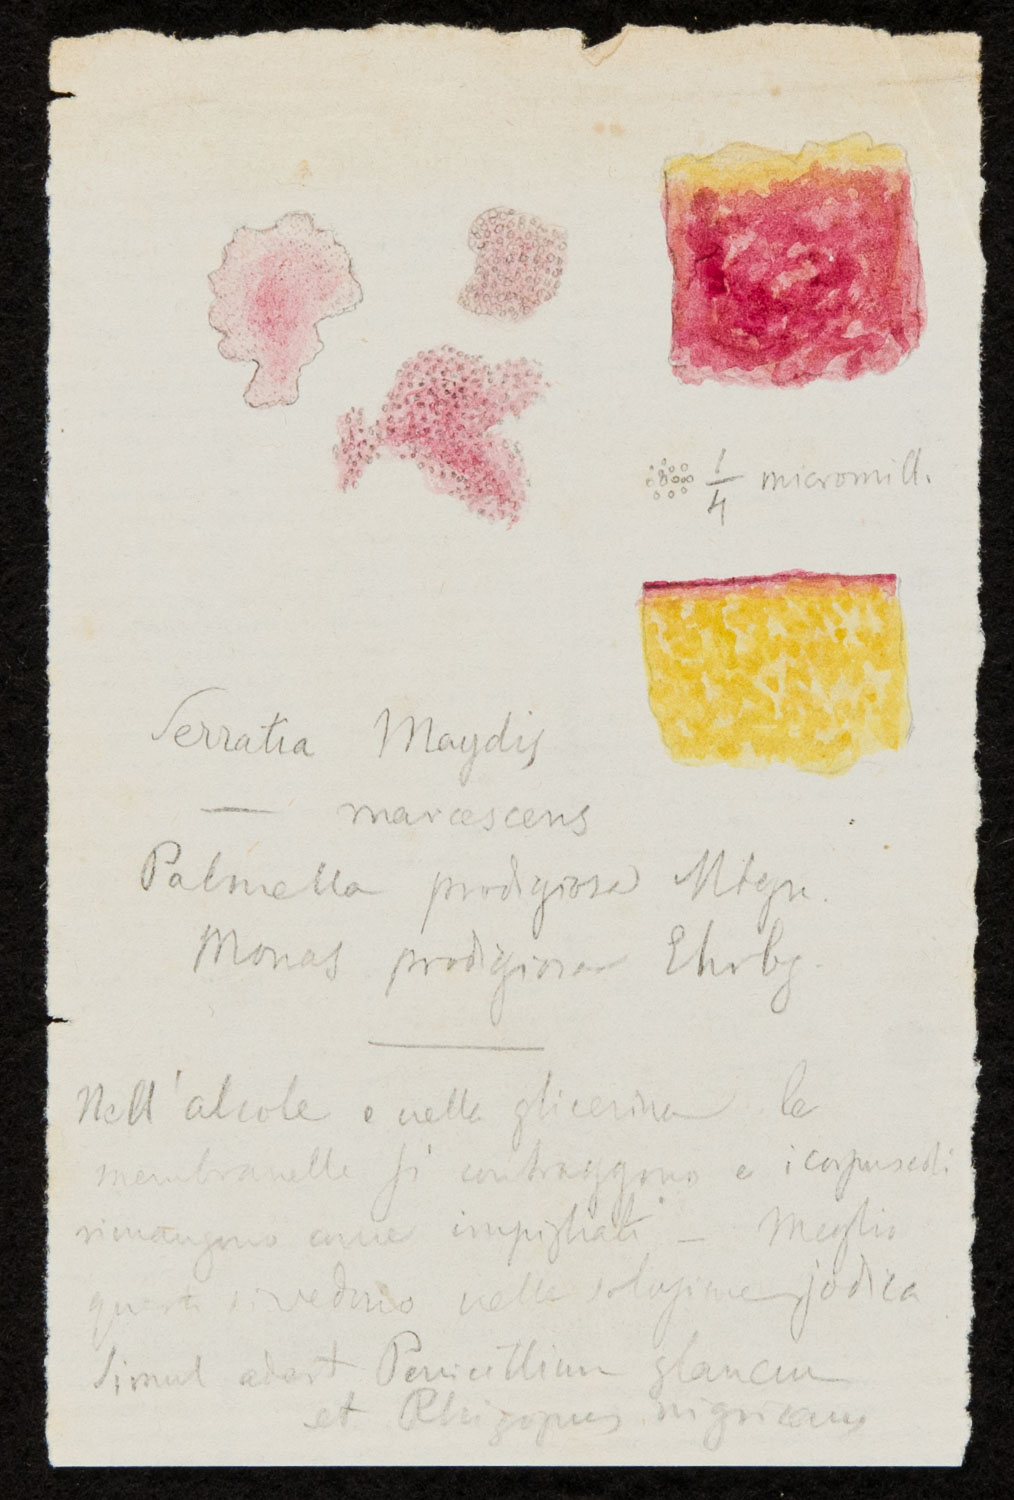 1/4 micromill.
Serratia Maydis
— marcescens
Palmella prodigiosa Mtgn.
Monas prodigiosa Ehrbg.
Nell'alcole e nella glicerina le
membranelle si contraggono e i corpuscoli
rimangono come impigliati — Meglio
questi si vedono nella soluzione jodica
Simul adest Penicillium glaucum
et Rhizopus nigricans